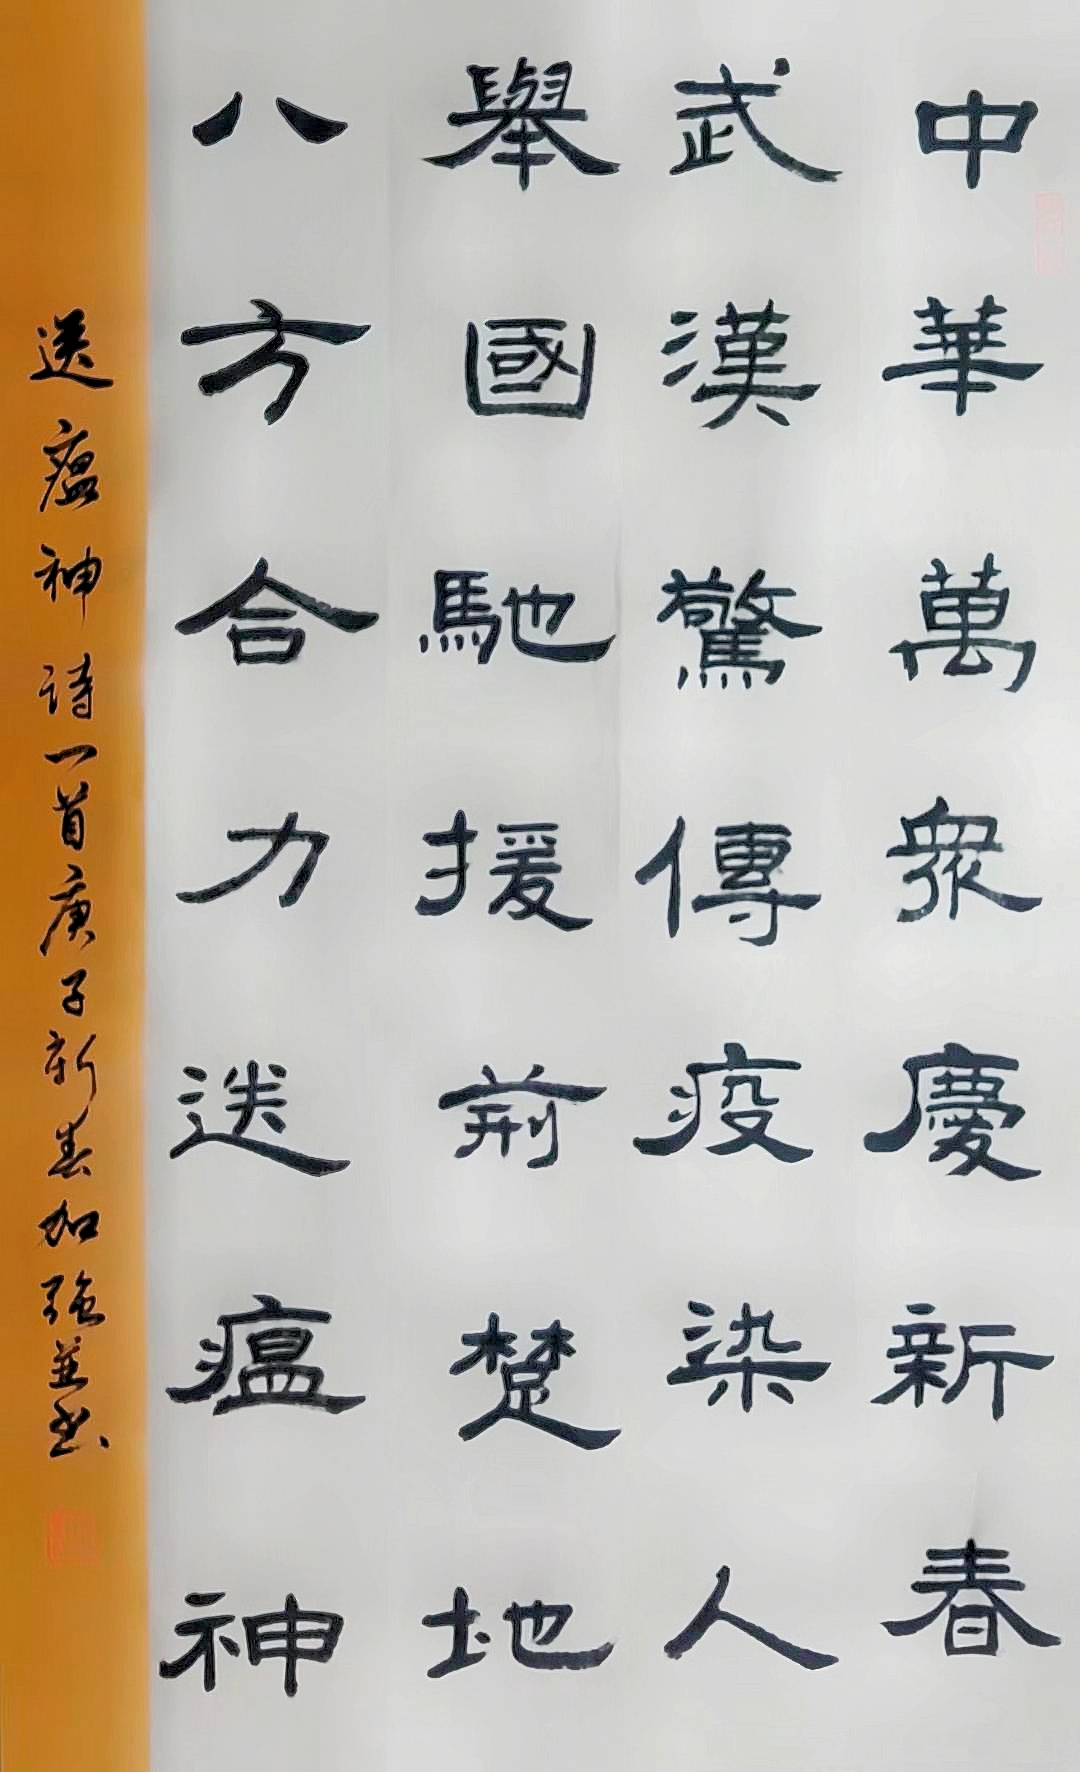 中華萬眾慶新春
武漢驚傳疫染人
舉國馳援荊楚地
八方合力送瘟神
送瘟神诗一首庚子新春加强並书